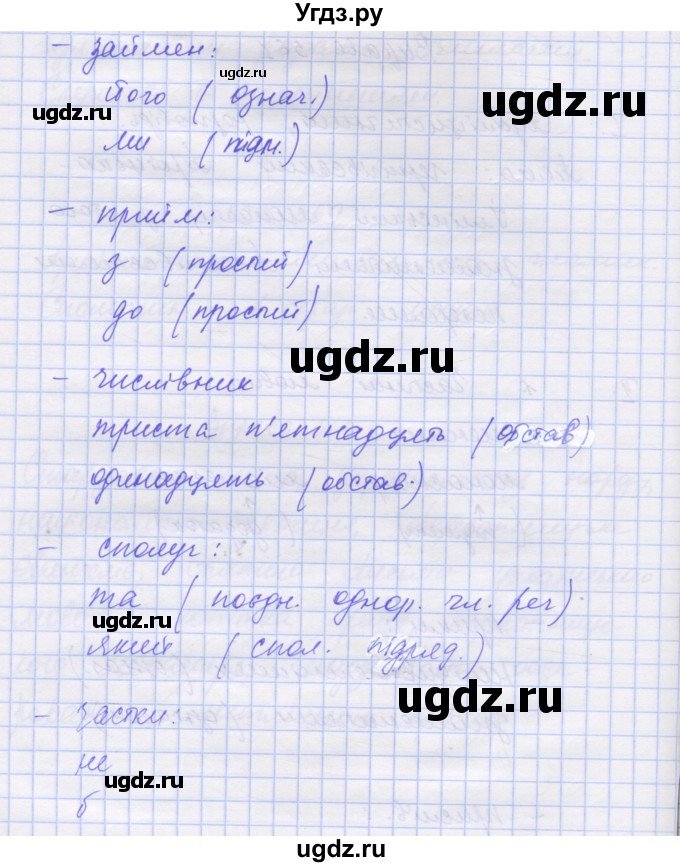 Угдз.ру
– займен:
його (означ.)
ми (підм.)
– прийм:
з (простий)
до (простий)
– числівник
триста п'ятнадцять (обстав)
одинадцять (обстав.)
– сполуч:
та (поєдн. однор. чл. реч)
який (спол. підряд.)
– частки:
не
б
ugdz.ru
ugdz.ru
ugdz.ru
ugdz.ru
ugdz.ru
ugdz.ru
ugdz.ru
ugdz.ru
ugdz.ru
ugdz.ru